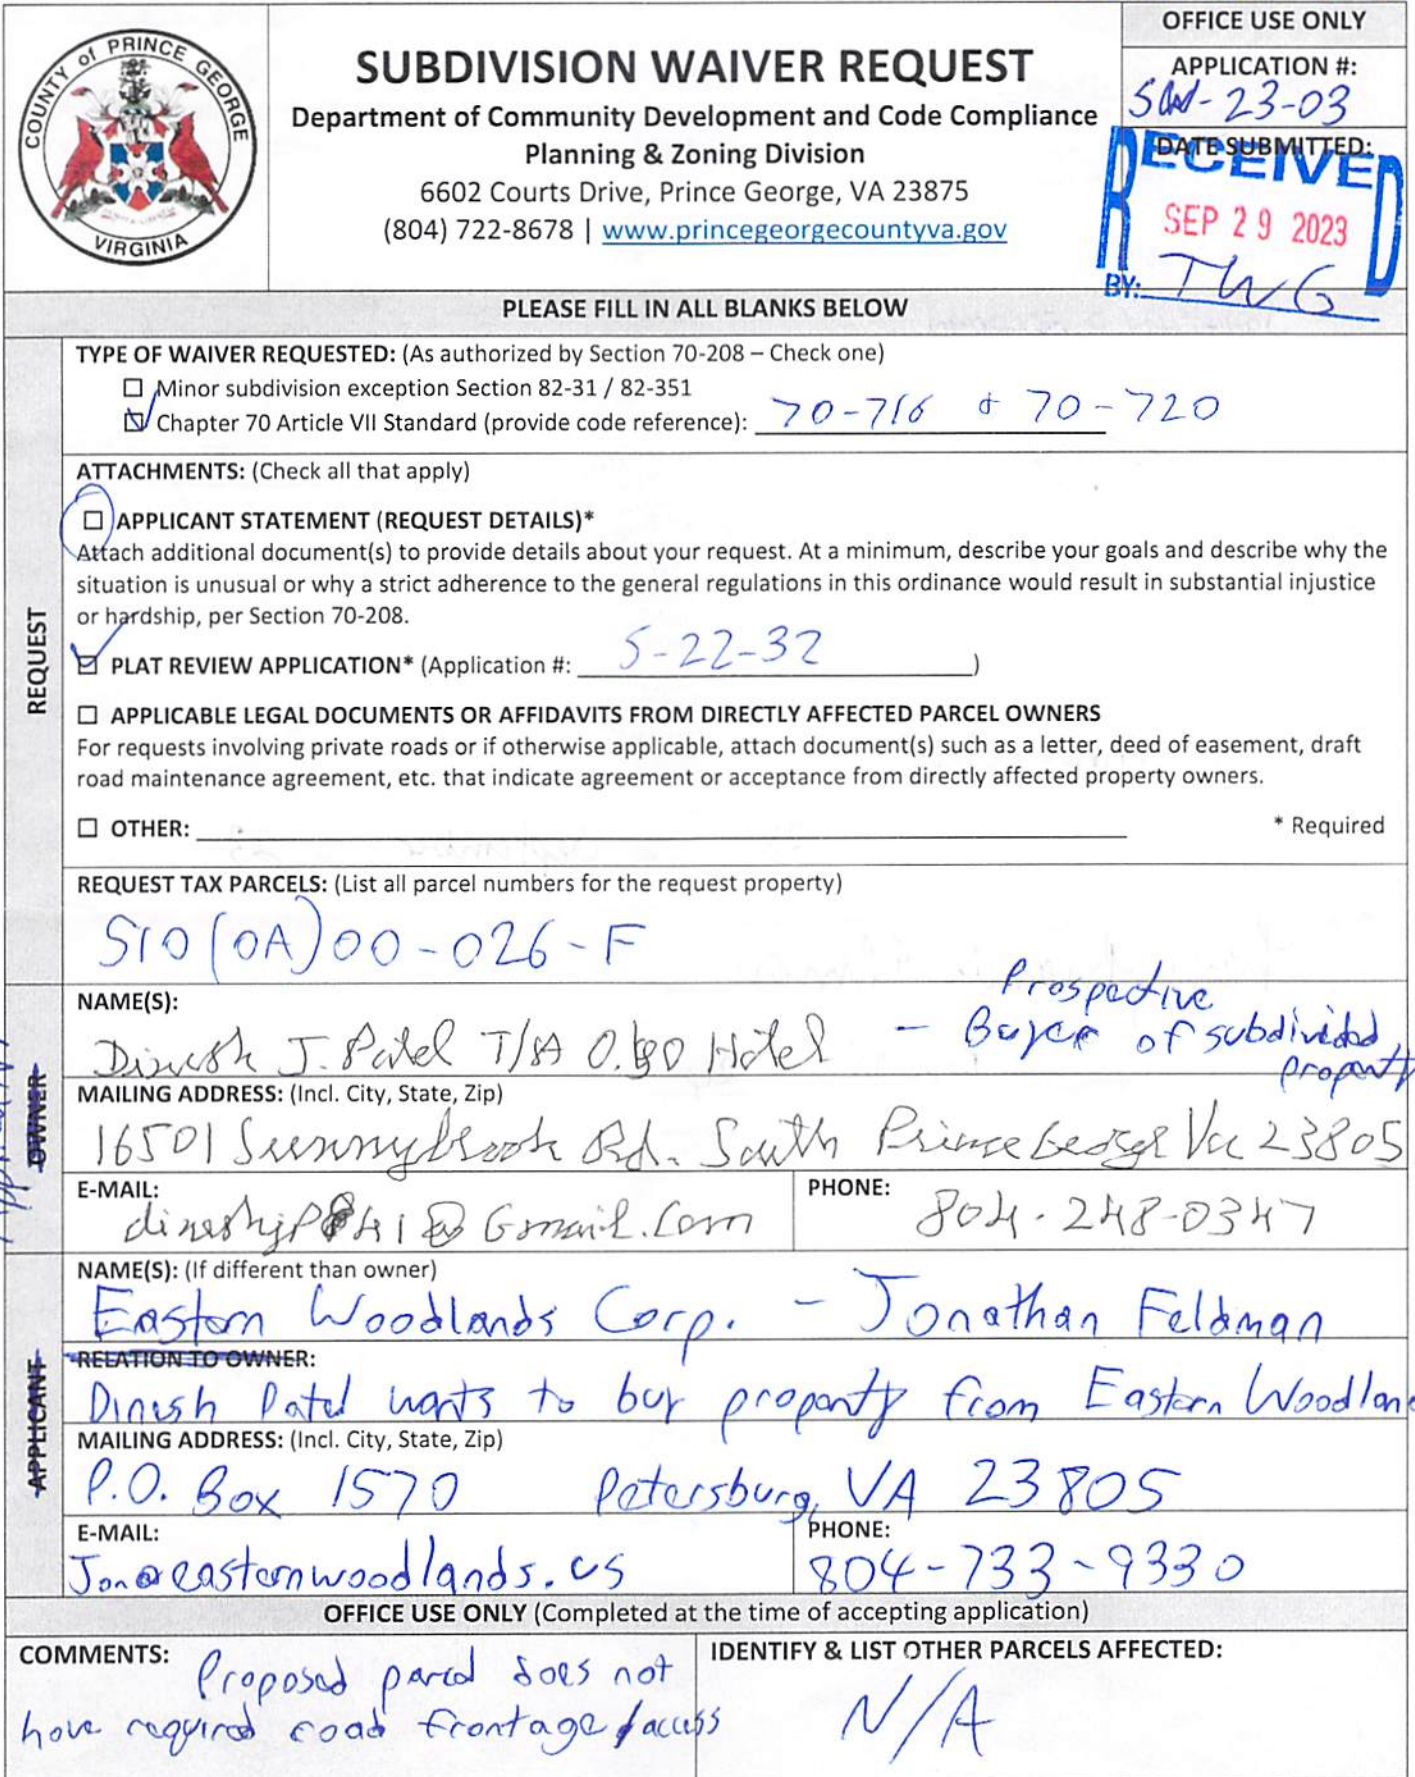 COUNTY of PRINCE GEORGE
VIRGINIA
SUBDIVISION WAIVER REQUEST
Department of Community Development and Code Compliance
Planning & Zoning Division
6602 Courts Drive, Prince George, VA 23875
(804) 722-8678 | www.princegeorgecountyva.gov
OFFICE USE ONLY
APPLICATION #:
SW-23-03
DATE SUBMITTED:
RECEIVED
SEP 29 2023
BY: TWG
PLEASE FILL IN ALL BLANKS BELOW
REQUEST
TYPE OF WAIVER REQUESTED: (As authorized by Section 70-208 – Check one)
☐ Minor subdivision exception Section 82-31 / 82-351
☑ Chapter 70 Article VII Standard (provide code reference): 70-716 & 70-720
ATTACHMENTS: (Check all that apply)
☐ APPLICANT STATEMENT (REQUEST DETAILS)*
Attach additional document(s) to provide details about your request. At a minimum, describe your goals and describe why the
situation is unusual or why a strict adherence to the general regulations in this ordinance would result in substantial injustice
or hardship, per Section 70-208.
☑ PLAT REVIEW APPLICATION* (Application #: S-22-32)
☐ APPLICABLE LEGAL DOCUMENTS OR AFFIDAVITS FROM DIRECTLY AFFECTED PARCEL OWNERS
For requests involving private roads or if otherwise applicable, attach document(s) such as a letter, deed of easement, draft
road maintenance agreement, etc. that indicate agreement or acceptance from directly affected property owners.
☐ OTHER:
* Required
REQUEST TAX PARCELS: (List all parcel numbers for the request property)
510(0A)00-026-F
OWNER
NAME(S):
Dinesh J. Patel T/A
Hotel
- Prospective
Buyer of subdivided
property
MAILING ADDRESS: (Incl. City, State, Zip)
16501 Sunnybrook Rd. South Prince George Va 23805
E-MAIL:
@Gmail.com
PHONE:
804-248-0347
APPLICANT
NAME(S): (If different than owner)
Eastern Woodlands Corp. - Jonathan Feldman
RELATION TO OWNER:
Dinesh Patel wants to buy property from Eastern Woodlan
MAILING ADDRESS: (Incl. City, State, Zip)
P.O. Box 1570 Petersburg, VA 23805
E-MAIL:
Jon@easternwoodlands.us
PHONE:
804-733-9330
OFFICE USE ONLY (Completed at the time of accepting application)
COMMENTS:
Proposed parcel does not
have required road frontage/access
IDENTIFY & LIST OTHER PARCELS AFFECTED:
N/A